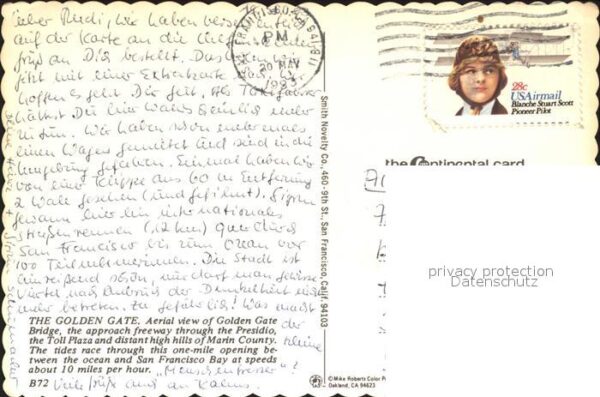 lieber Rudi, wir haben versehentlich
auf der Karte an die
Grüß an Dich bestellt. Das
jetzt mit einer Extrakarte
hoffen es geht Dir gut. Als
hättest Du hier
zu tun. Wir haben schon mehrmals
einen Wagen gemietet und sind in die
Umgebung gefahren. Einmal haben wir
von einer Klippe aus 60 m Entfernung
2 Wale gesehen (und gefilmt). Sigrun
gewann hier ein internationales
Straßenrennen (12 km) quer durch
San Francisco bis zum Ozean vor
100 Teilnehmerinnen. Die Stadt ist
hinreißend schön, nur darf man gewisse
Viertel nach Anbruch der Dunkelheit nicht
mehr betreten. Zu gefährlich! Was macht
der
kleine
"Menschenfresser"?
Viele Grüße auch an
THE GOLDEN GATE. Aerial view of Golden Gate
Bridge, the approach freeway through the Presidio,
the Toll Plaza and distant high hills of Marin County.
The tides race through this one-mile opening be-
tween the ocean and San Francisco Bay at speeds
about 10 miles per hour.
B72
Smith Novelty Co., 460-9th St., San Francisco, Calif. 94103
© Mike Roberts Color Pr
Oakland, CA 94623
SAN FRANCISCO
PM
20 MAY
28c
USAirmail
Blanche Stuart Scott
Pioneer Pilot
the Continental card
privacy protection
Datenschutz